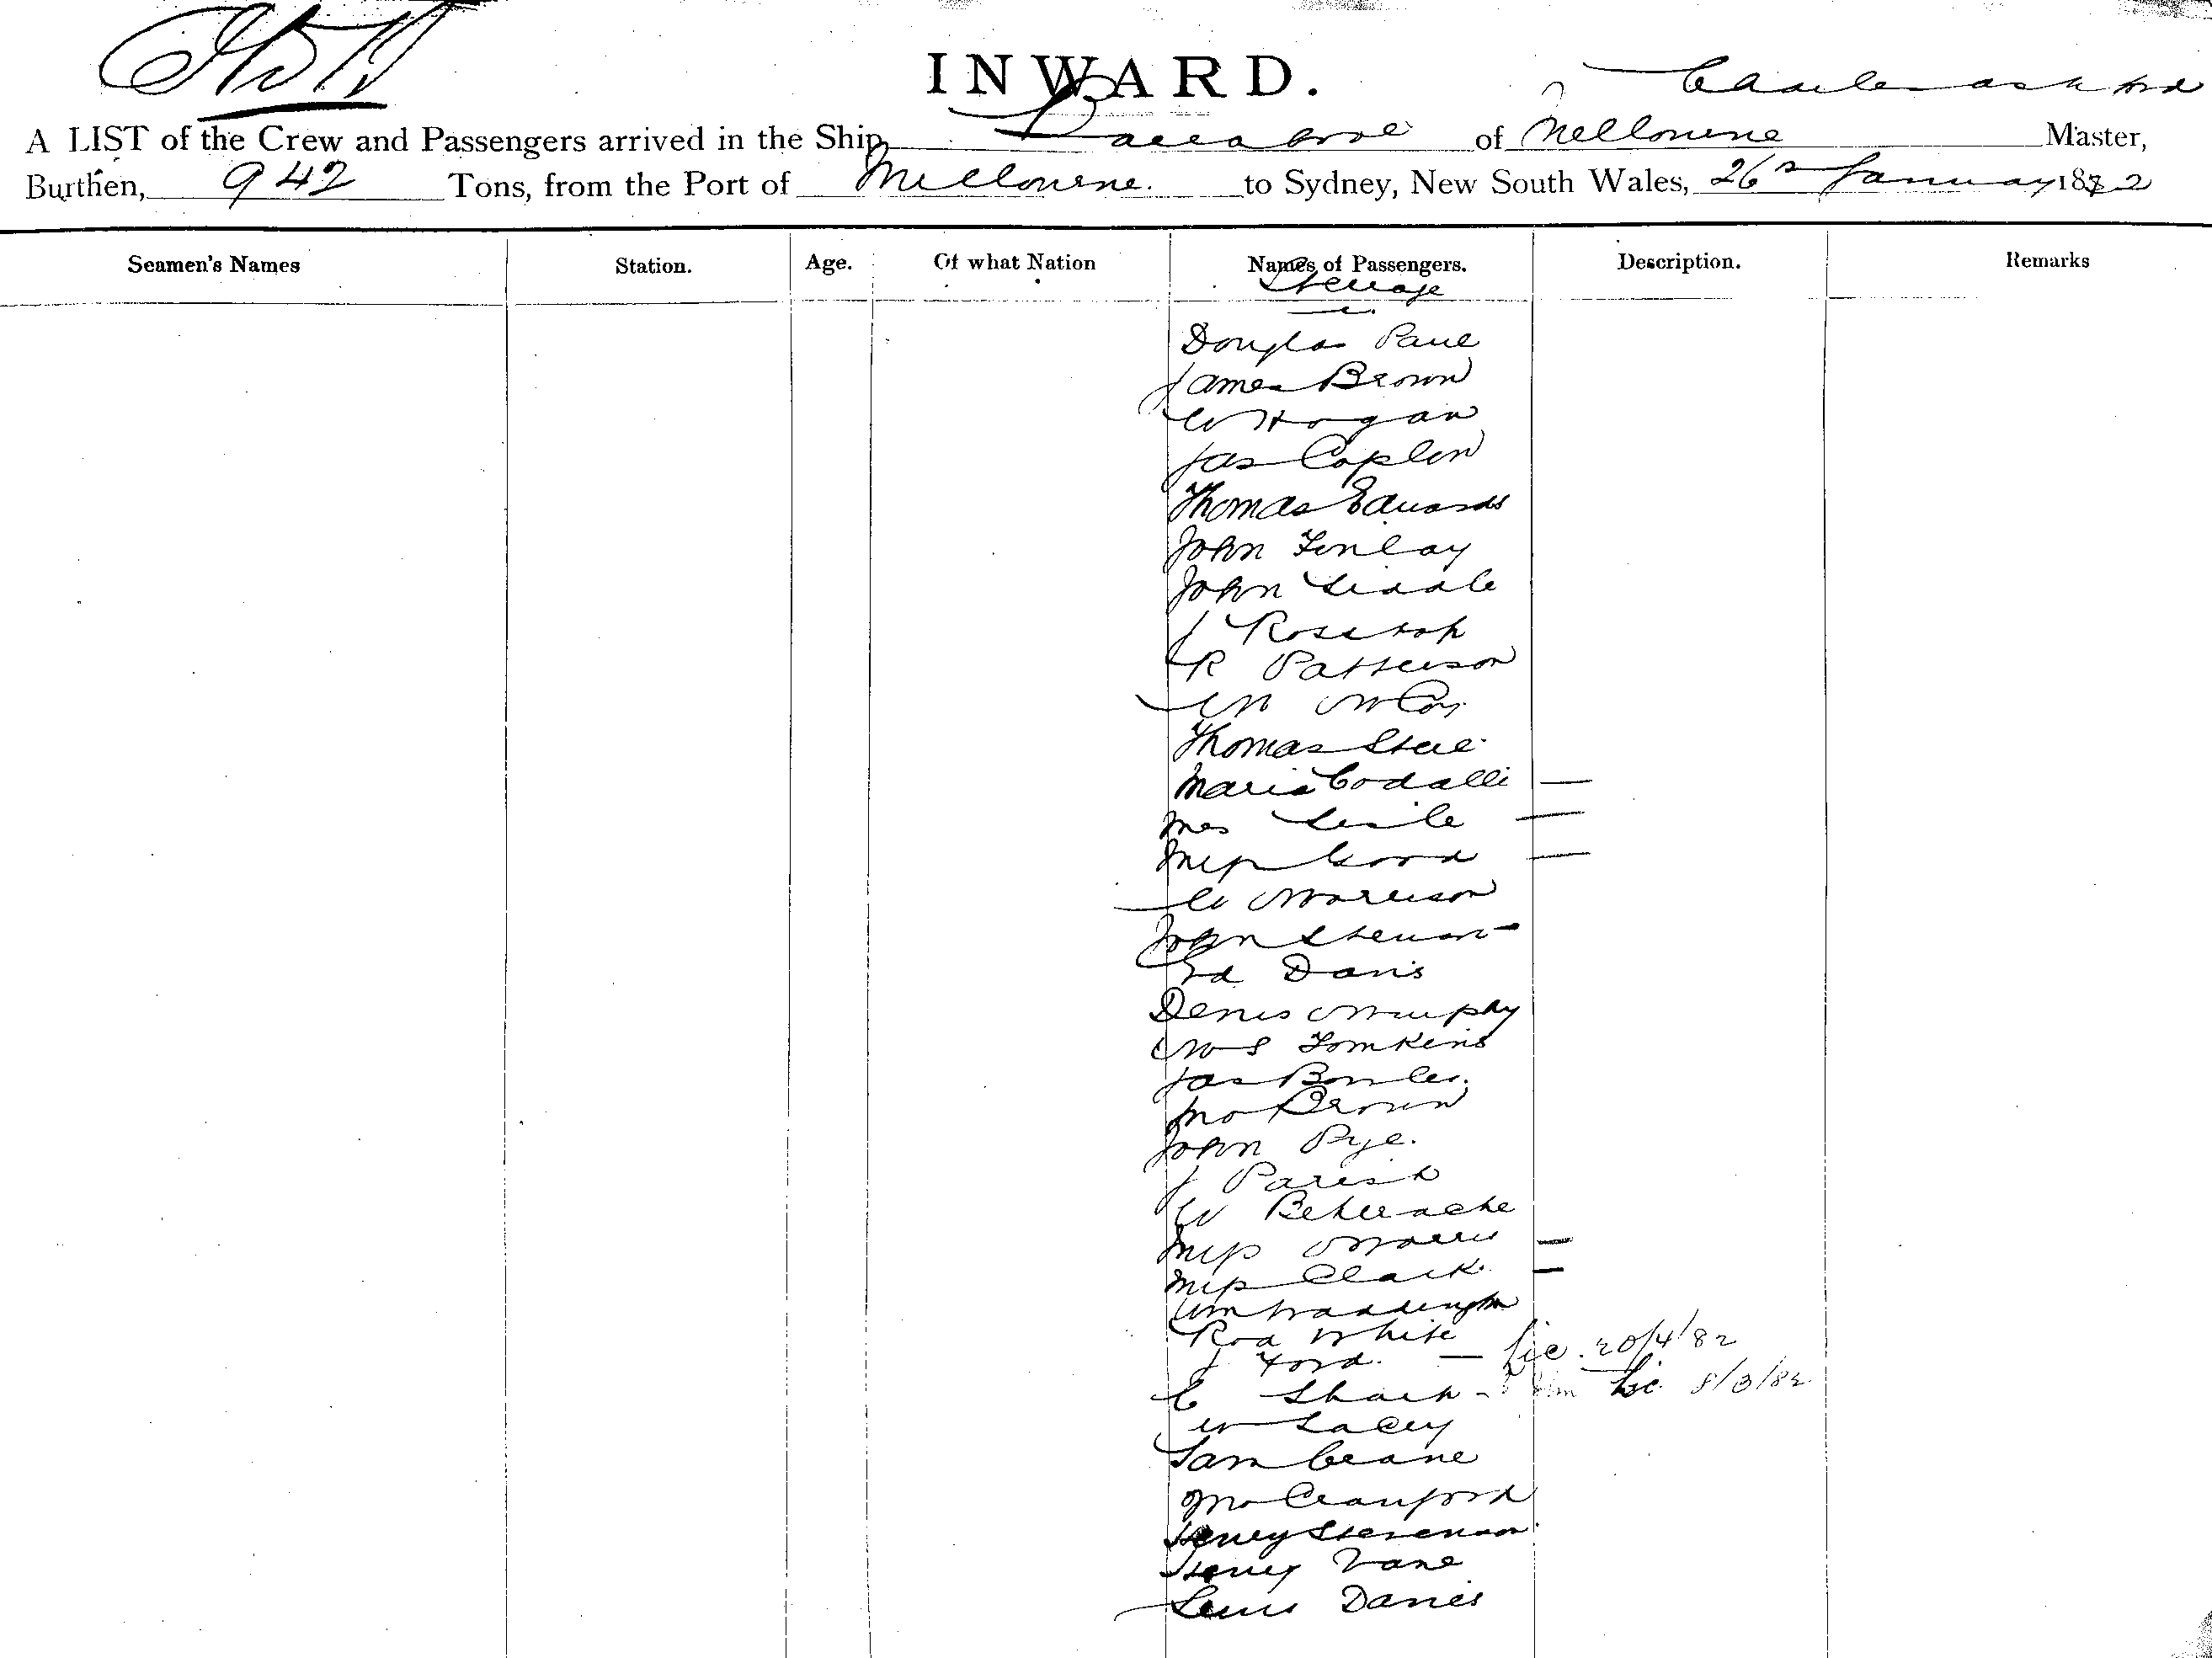 INWARD.
A LIST of the Crew and Passengers arrived in the Ship, of Melbourne Master,
Burthen, 942 Tons, from the Port of Melbourne. to Sydney, New South Wales, 26th January 1882
Seamen's Names Station. Age. Of what Nation Names of Passengers. Description. Remarks
Steerage
Douglas Paul
James Brown
W Hogan
Jas Coplen
Thomas Edwards
John Finlay
John Liddle
J
R Patterson
McCoy
Thomas Steel
Maria Codalli —
Mrs —
Miss Good —
W Morrison
John Stewart
Ed Davis
Denis Murphy
Tomkins
Jas Bowler.
Jno Brown
John Pye.
J Parish
W
Miss Morris —
Miss Clark. —
Wm Waddington
Rod White
J Ford. — Lic. 20/4/82
C Lic. 8/3/82
W Lacey
Sam Crane
Jno Crawford
Henry Stevenson
Henry Vane
Lewis Davies